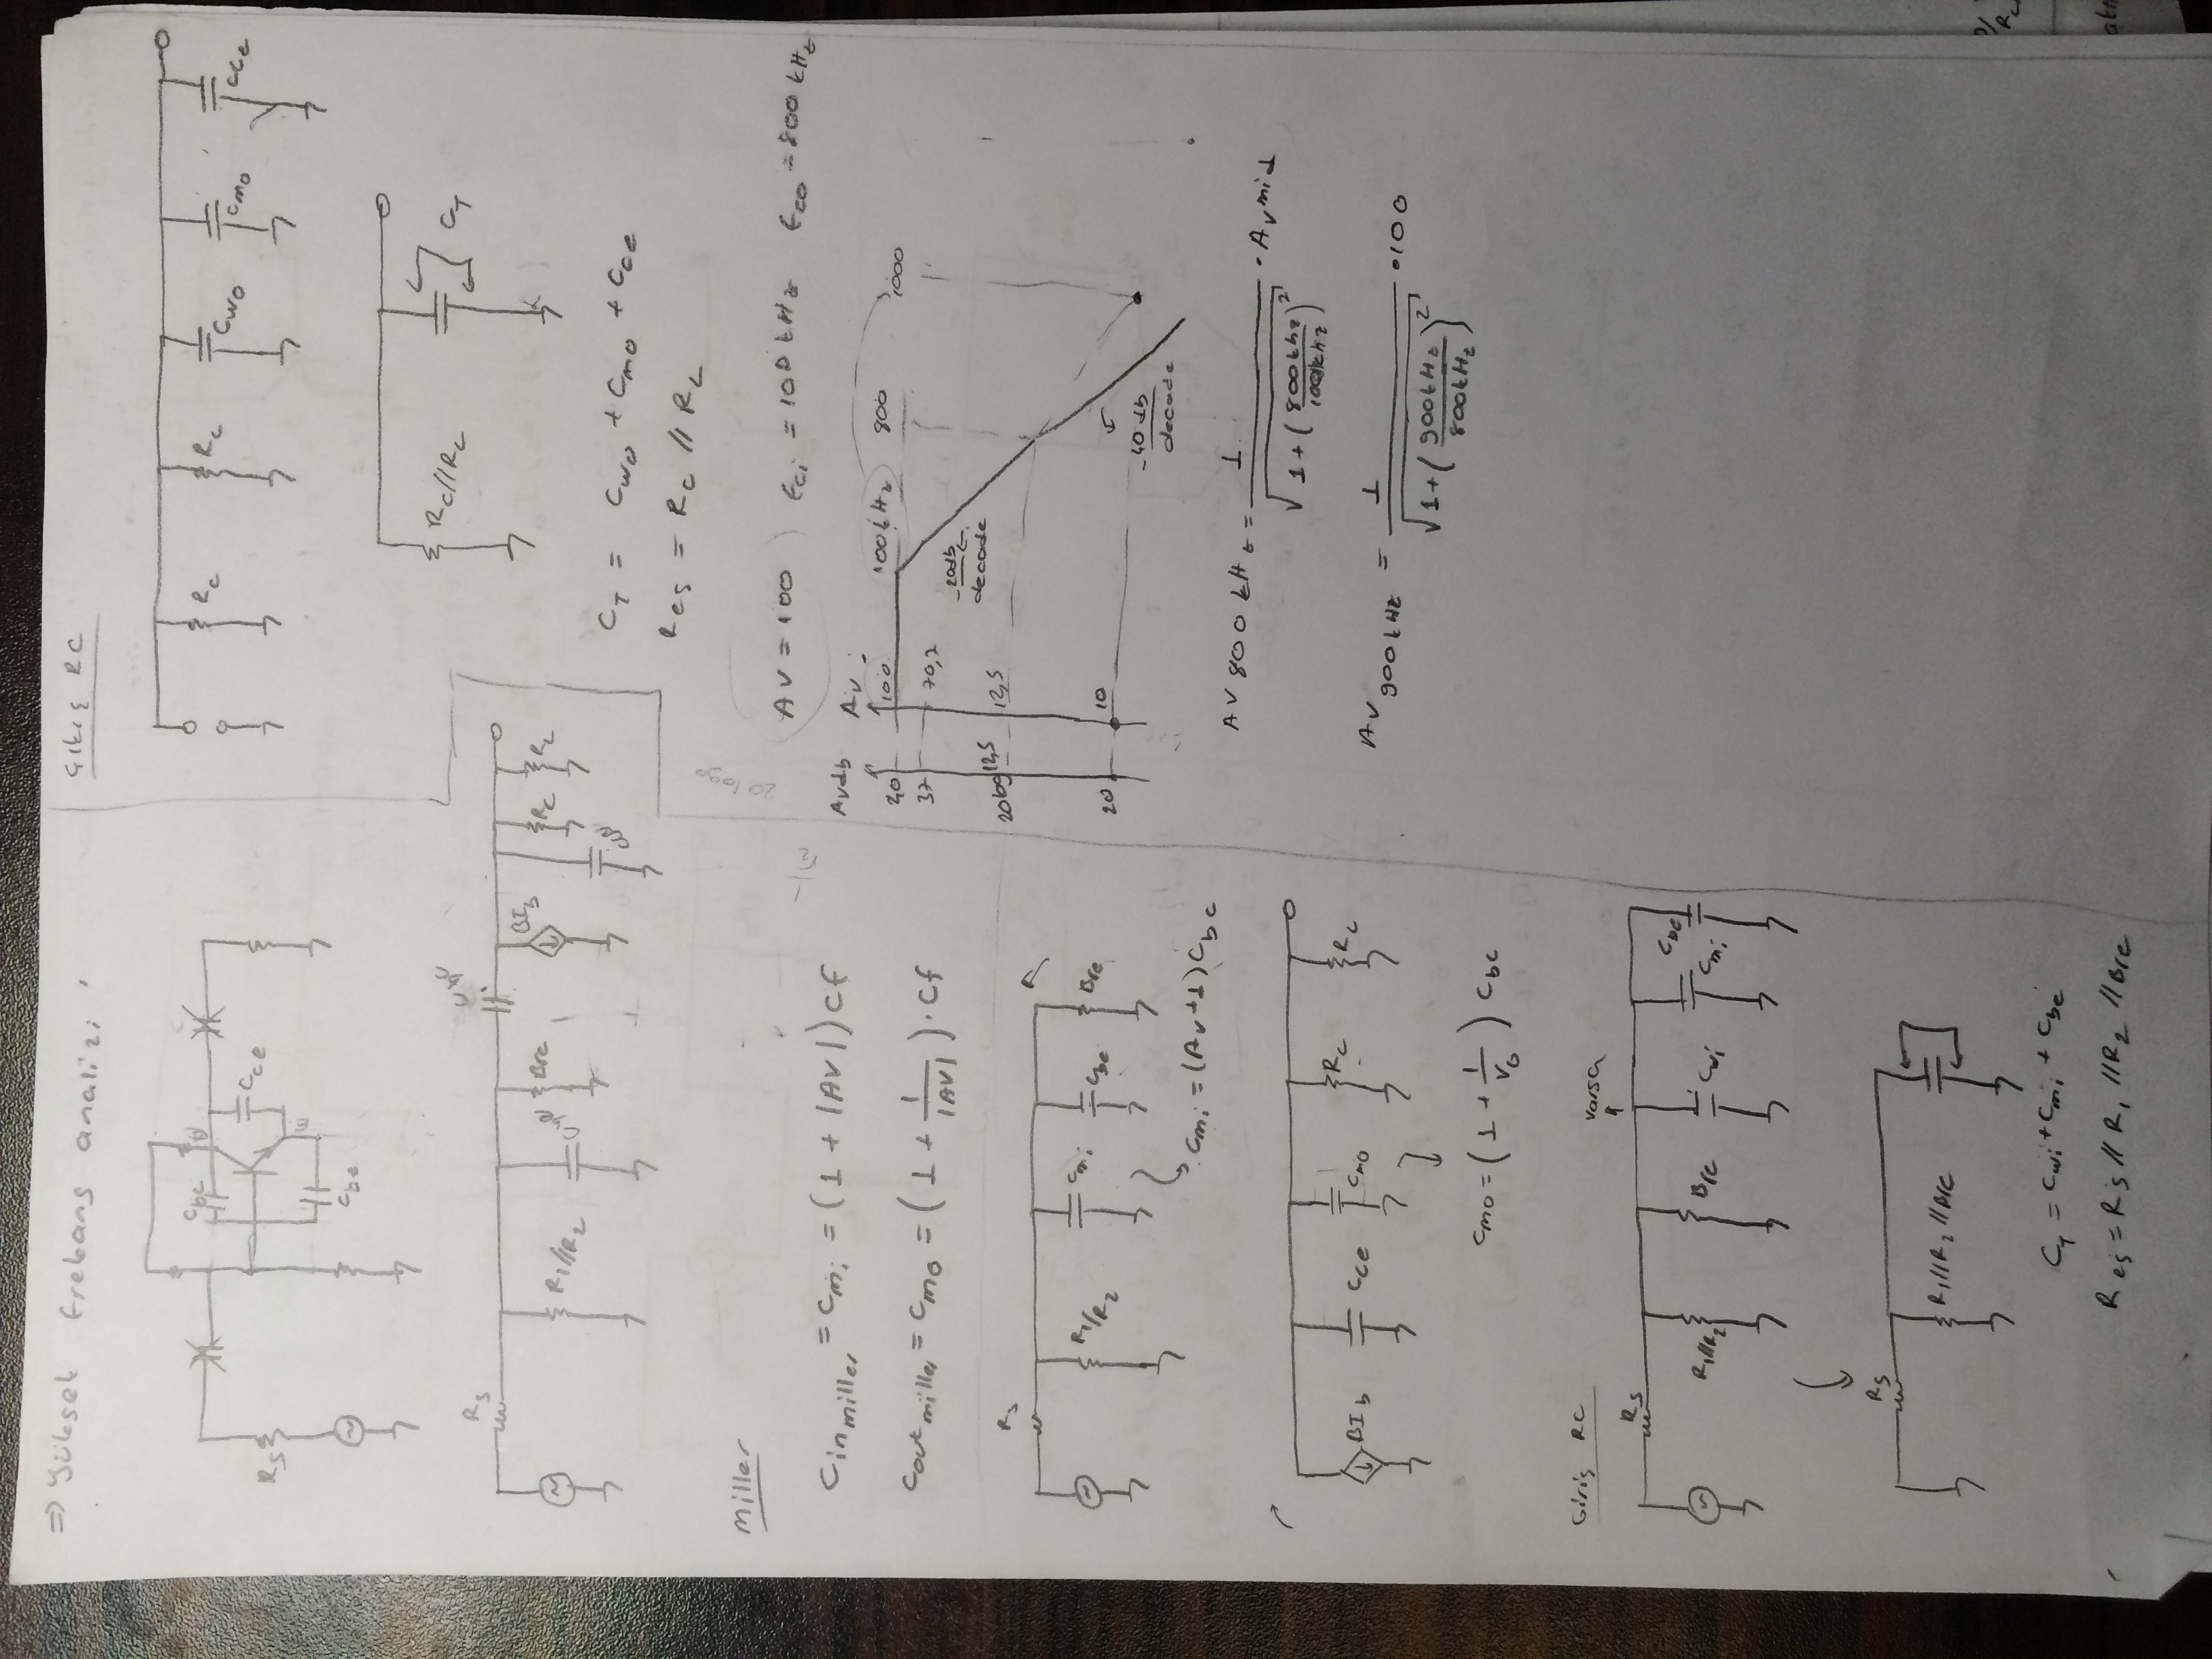 ⇒ Yüksek frekans analizi
Cbc
C
Rs
Cce
E
Cbe
Rs
Cbc
R1//R2
Cbe
Bre
BIb
Cce
Rc
RL
Miller
Cinmiller = Cmi = (1 + |AV|) Cf
Cout miller = Cmo = (1 + 1/|AV|) . Cf
Rs
R1//R2
Cmi
Cbe
Bre
Cmi = (Av+1) Cbc
BIb
Cce
Cmo
Rc
RL
Cmo = (1 + 1/V0) Cbc
Giriş RC
varsa
Rs
R1//R2
Bre
Cwi
Cmi
Cbe
Rs
R1//R2//Bre
CT = Cwi + Cmi + Cbe
Reş = Rs // R1 // R2 // Bre
Çıkış RC
Rc
RL
Cwo
Cmo
Cce
Rc//RL
CT
CT = Cwo + Cmo + Cce
Reş = Rc // RL
20 log
1/√2
AV = 100 fci = 100 kHz fco = 800 kHz
Avdb Av
40 100 100kHz 800 1000
37 70,7
-20db/decade
20log12,5 12,5
20 10
-40db/decade
AV 800 kHz = 1/√(1 + (800khz/100khz)²) . Avmid
AV 900kHz = 1/√(1 + (900kHz/800kHz)²) . 100